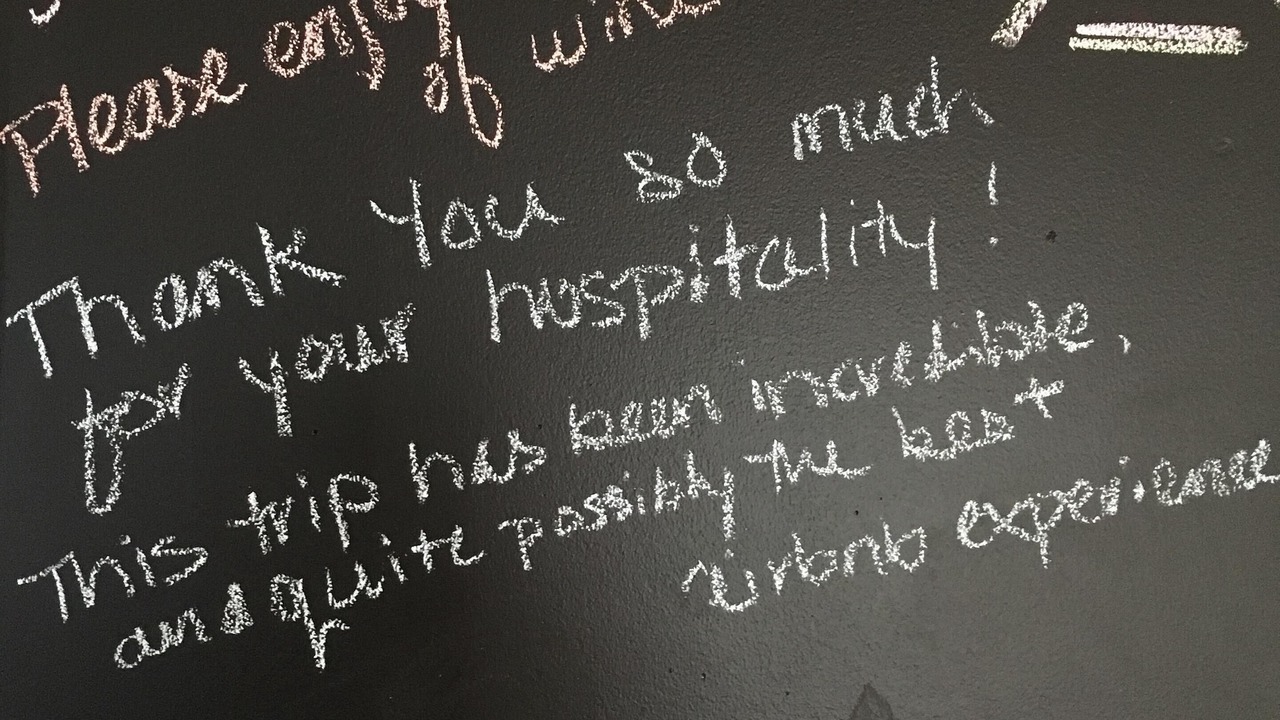 Please enjoy
of wine
Thank you so much
for your hospitality!
This trip has been incredible,
and quite possibly the best
airbnb experience